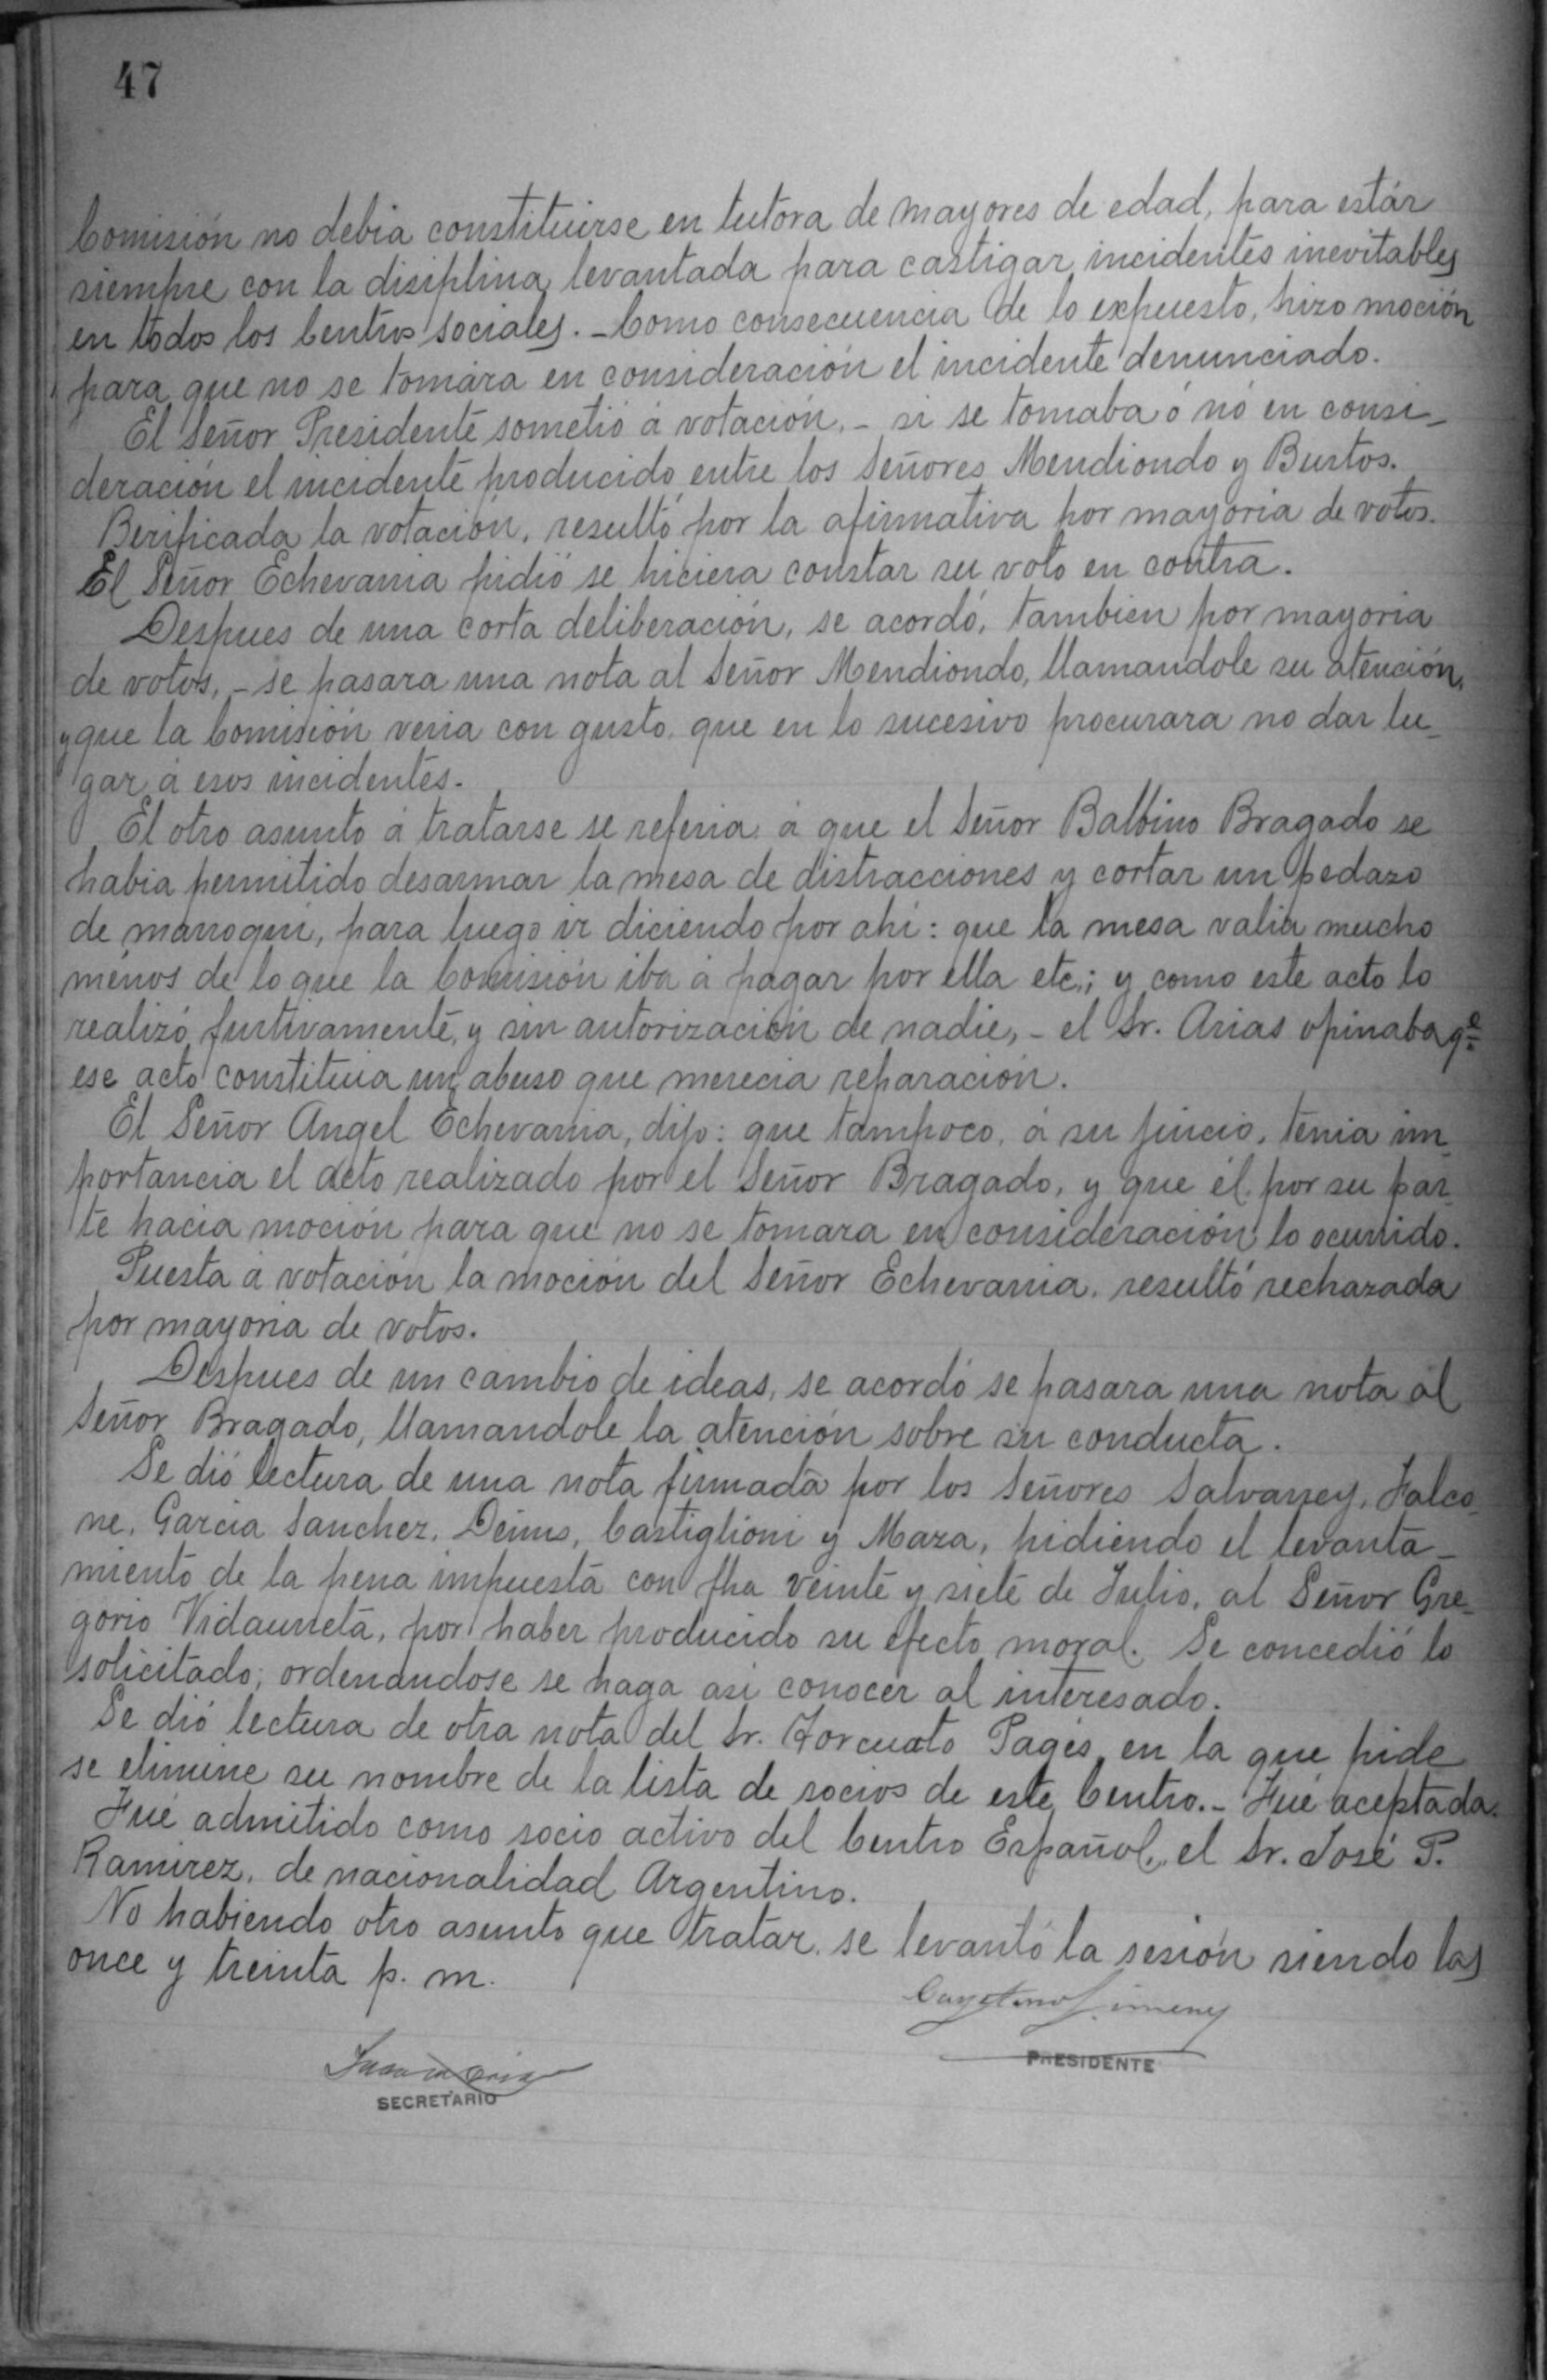 47
Comisión no debia constituirse en tutora de mayores de edad, para estár
siempre con la disiplina levantada para castigar incidentes inevitables
en todos los Centros Sociales. - Como consecuencia de lo expuesto, hizo moción
para que no se tomára en consideración el incidente denunciado.
El Señor Presidente sometió á votación, - si se tomaba ó nó en consi-
deración el incidente producido entre los Señores Mendiondo y Bustos.
Berificada la votación, resultó por la afirmativa por mayoria de votos.
El Señor Echevarria pidió se hiciera constar su voto en contra.
Despues de una corta deliberación, se acordó, tambien por mayoria
de votos, - se pasara una nota al Señor Mendiondo, llamandole su atención,
y que la Comisión veria con gusto, que en lo sucesivo procurara no dar lu-
gar á esos incidentes.
El otro asunto á tratarse se referia á que el Señor Balbino Bragado se
habia permitido desarmar la mesa de distracciones y cortar un pedazo
de marroquí, para luego ir diciendo por ahí: que la mesa valia mucho
ménos de lo que la Comisión iba á pagar por ella etc.; y como este acto lo
realizó furtivamente, y sin autorización de nadie, - el Sr. Arias opinaba qe
ese acto constituia un abuso que merecia reparación.
El Señor Angel Echevarria, dijo: que tampoco, á su juicio, tenia im-
portancia el acto realizado por el Señor Bragado, y que él, por su par-
te hacia moción para que no se tomara en consideración lo ocurrido.
Puesta á votación la moción del Señor Echevarria, resultó rechazada
por mayoria de votos.
Despues de un cambio de ideas, se acordó se pasara una nota al
Señor Bragado, llamandole la atención sobre su conducta.
Se dió lectura de una nota firmada por los Señores Salvarrey, Falco-
ne, Garcia Sanchez, Castiglioni y Maza, pidiendo el levanta-
miento de la pena impuesta con fha veinte y siete de Julio, al Señor Gre-
gorio Vidaurreta, por haber producido su efecto moral. Se concedió lo
solicitado, ordenandose se haga asi conocer al interesado.
Se dió lectura de otra nota del Sr. Torcuato Pagés, en la que pide
se elimine su nombre de la lista de socios de este Centro. - Fué aceptada.
Fué admitido como socio activo del Centro Español, el Sr. José P.
Ramirez, de nacionalidad Argentino.
No habiendo otro asunto que tratar, se levantó la sesión siendo las
once y treinta p. m.
Cayetano Jimenez
PRESIDENTE
SECRETARIO